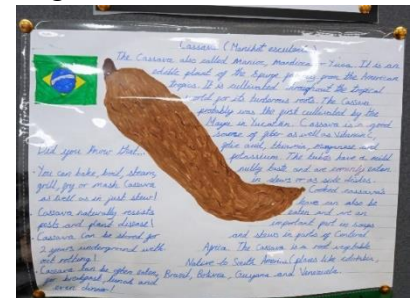 Cassava (Manihot esculenta)
The Cassava also called Manioc, Mandioca - Yuca. It is an
edible plant of the Spurge from the American
tropics. It is cultivated throughout the tropical
world for its tuberous roots. The Cassava
probably was the first cultivated by the
Maya in Yucatan. Cassava is a good
source of fiber as well as vitamin C,
folic acid, thiamin, manganese and
potassium. The tubers have a mild
nutty taste and are commonly eaten
in stews or as side dishes.
Cooked cassava
can also be
eaten and are an
important part in soups
and stews in parts of Central
Africa. The Cassava is a root vegetable
Native to South America places like
Brazil, Bolivia, Guyana and Venezuela.
Did you know that...
• You can bake, boil, steam,
grill, fry or mash Cassava
as well as in just stew!
• Cassava naturally resists
pests and plant disease!
• Cassava can be stored for
2 years underground with
out rotting!
• Cassava can be often eaten
for breakfast, lunch and
even dinner!